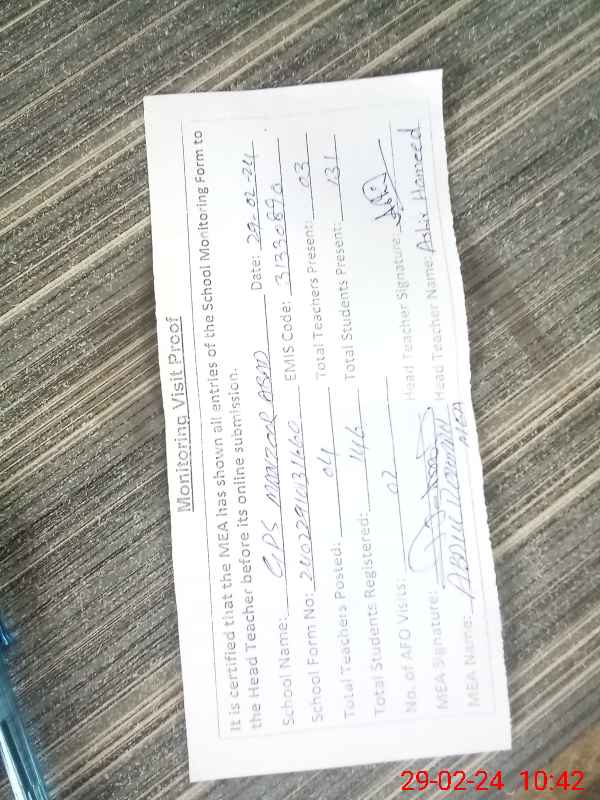 Monitoring Visit Proof
It is certified that the MEA has shown all entries of the School Monitoring Form to
the Head Teacher before its online submission.
School Name: GPS MANZOOR ABAD Date: 29-02-24
School Form No: EMIS Code: 31330890
Total Teachers Posted: 04 Total Teachers Present: 03
Total Students Registered: 146 Total Students Present: 131
No. of AFO Visits: 02 Head Teacher Signature:
MEA Signature: Head Teacher Name: Ashir Hameed
MEA Name: MEA
29-02-24 10:42